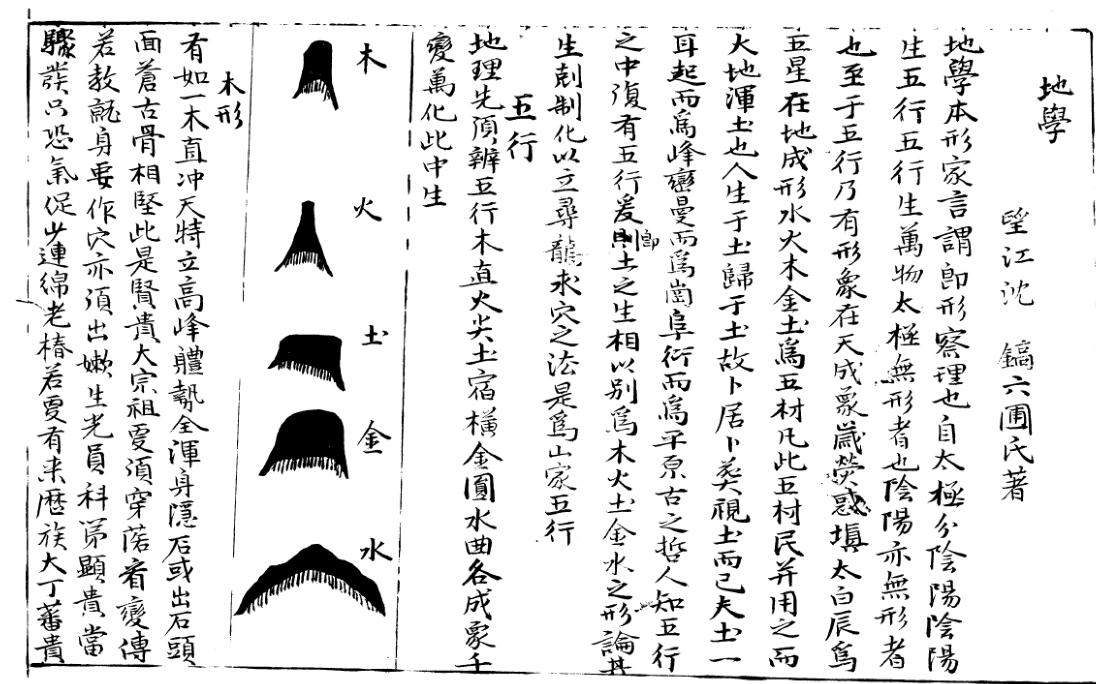 地學
望江沈　鎬六圃氏著
地學本形家言謂卽形察理也自太極分陰陽陰陽
生五行五行生萬物太極無形者也陰陽亦無形者
也至于五行乃有形象在天成象歲熒惑塡太白辰爲
五星在地成形水火木金土爲五材凡此五材民并用之而
大地渾土也人生于土歸于土故卜居卜葬視土而已夫土一
耳起而爲峰巒曼而爲崗阜衍而爲平原古之哲人知五行
之中復有五行爰卽土之生相以别爲木火土金水之形論其
生剋制化以立尋龍求穴之法是爲山家五行
五行
地理先須辨五行木直火尖土宿橫金圓水曲各成象千
變萬化此中生
木
火
土
金
水
木形
有如一木直冲天特立高峰體勢全渾身隱石或出石頭
面蒼古骨相堅此是賢貴大宗祖更須穿落看變傳
若教就身要作穴亦須出嫩生光員科第顯貴當
驟發只恐氣促少連綿老椿若更有来歷族大丁蕃貴